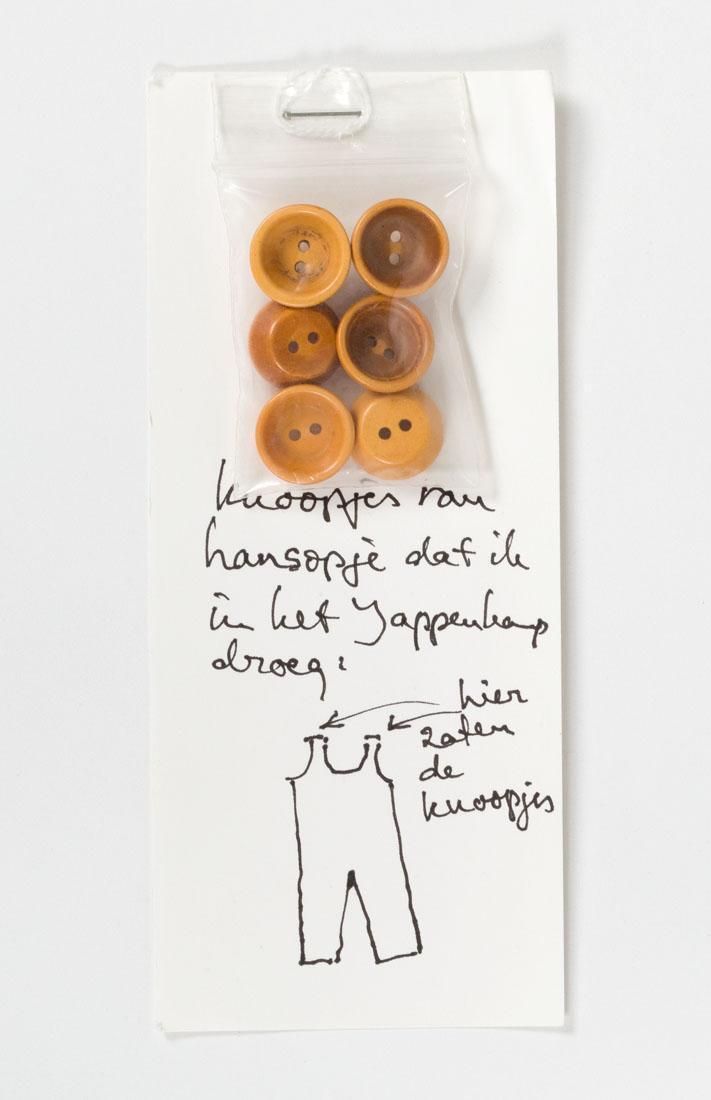 knoopjes van
hansopje dat ik
in het Jappenkamp
droeg:
hier
zaten
de
knoopjes